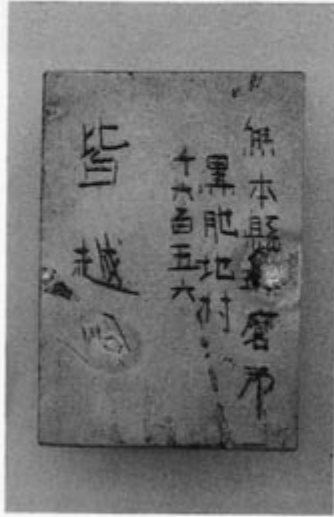 熊本縣球磨郡
黒肥地村
千六百五六
皆越